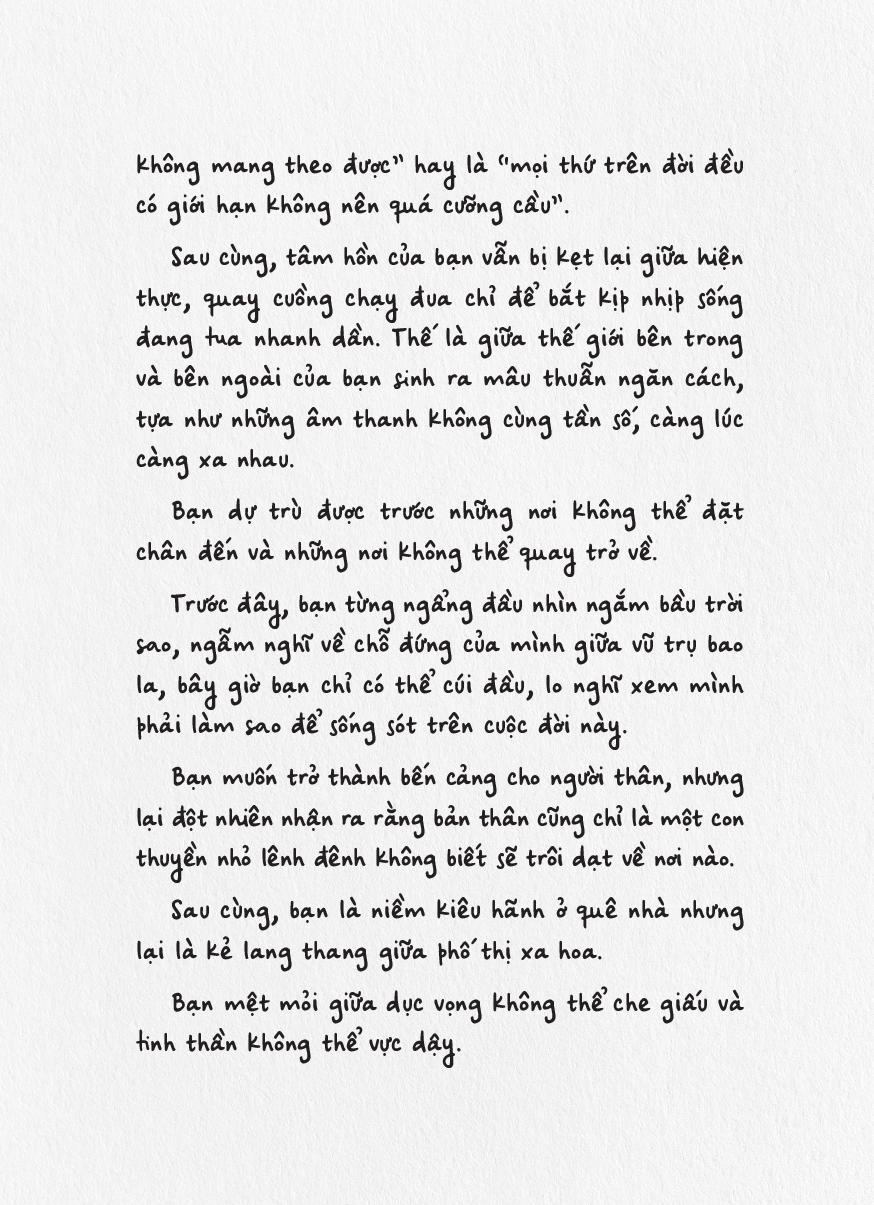 không mang theo được” hay là “mọi thứ trên đời đều
có giới hạn không nên quá cưỡng cầu”.
Sau cùng, tâm hồn của bạn vẫn bị kẹt lại giữa hiện
thực, quay cuồng chạy đua chỉ để bắt kịp nhịp sống
đang tua nhanh dần. Thế là giữa thế giới bên trong
và bên ngoài của bạn sinh ra mâu thuẫn ngăn cách,
tựa như những âm thanh không cùng tần số, càng lúc
càng xa nhau.
Bạn dự trù được trước những nơi không thể đặt
chân đến và những nơi không thể quay trở về.
Trước đây, bạn từng ngẩng đầu nhìn ngắm bầu trời
sao, ngẫm nghĩ về chỗ đứng của mình giữa vũ trụ bao
la, bây giờ bạn chỉ có thể cúi đầu, lo nghĩ xem mình
phải làm sao để sống sót trên cuộc đời này.
Bạn muốn trở thành bến cảng cho người thân, nhưng
lại đột nhiên nhận ra rằng bản thân cũng chỉ là một con
thuyền nhỏ lênh đênh không biết sẽ trôi dạt về nơi nào.
Sau cùng, bạn là niềm kiêu hãnh ở quê nhà nhưng
lại là kẻ lang thang giữa phố thị xa hoa.
Bạn mệt mỏi giữa dục vọng không thể che giấu và
tinh thần không thể vực dậy.